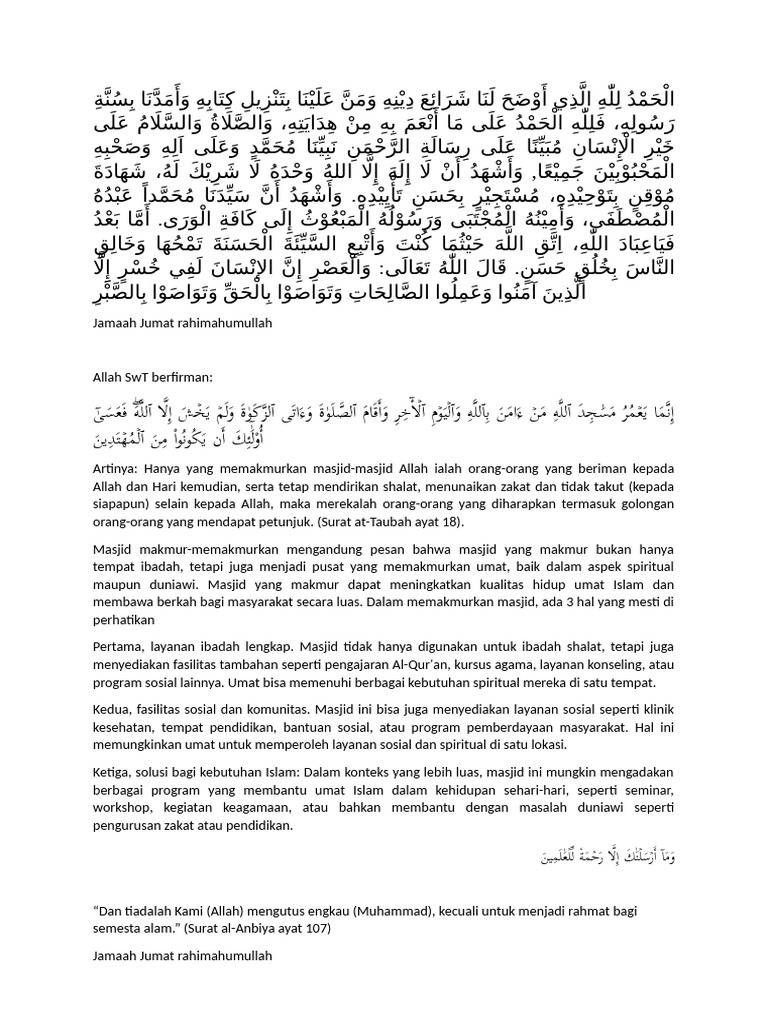 الْحَمْدُ لِلّٰهِ الَّذِي أَوْضَحَ لَنَا شَرَائِعَ دِيْنِهِ وَمَنَّ عَلَيْنَا بِتَنْزِيلِ كِتَابِهِ وَأَمَدَّنَا بِسُنَّةِ
رَسُولِهِ، فَلِلّٰهِ الْحَمْدُ عَلَى مَا أَنْعَمَ بِهِ مِنْ هِدَايَتِهِ، وَالصَّلَاةُ وَالسَّلَامُ عَلَى
خَيْرِ الْإِنْسَانِ مُبَيِّنًا عَلَى رِسَالَةِ الرَّحْمَنِ نَبِيِّنَا مُحَمَّدٍ وَعَلَى آلِهِ وَصَحْبِهِ
الْمَحْبُوْبِيْنَ جَمِيْعًا, وَأَشْهَدُ أَنْ لَا إِلَهَ إِلَّا اللهُ وَحْدَهُ لَا شَرِيْكَ لَهُ، شَهَادَةَ
مُوْقِنٍ بِتَوْحِيْدِهِ، مُسْتَجِيْرٍ بِحَسَنِ تَأْيِيْدِهِ. وَأَشْهَدُ أَنَّ سَيِّدَنَا مُحَمَّداً عَبْدُهُ
الْمُصْطَفَى، وَأَمِيْنُهُ الْمُجْتَبَى وَرَسُوْلُهُ الْمَبْعُوْثُ إِلَى كَافَةِ الْوَرَى. أَمَّا بَعْدُ
فَيَاعِبَادَ اللّٰهِ، اِتَّقِ اللَّهَ حَيْثُمَا كُنْتَ وَأَتْبِعِ السَّيِّئَةَ الْحَسَنَةَ تَمْحُهَا وَخَالِقِ
النَّاسَ بِخُلُقٍ حَسَنٍ. قَالَ اللّٰهُ تَعَالَى: وَالْعَصْرِ إِنَّ الإِنْسَانَ لَفِي خُسْرٍ إِلَّا
الَّذِينَ آمَنُوا وَعَمِلُوا الصَّالِحَاتِ وَتَوَاصَوْا بِالْحَقِّ وَتَوَاصَوْا بِالصَّبْرِ
Jamaah Jumat rahimahumullah
Allah SwT berfirman:
إِنَّمَا يَعْمُرُ مَسَٰجِدَ ٱللَّهِ مَنْ ءَامَنَ بِٱللَّهِ وَٱلْيَوْمِ ٱلْأَٓخِرِ وَأَقَامَ ٱلصَّلَوٰةَ وَءَاتَى ٱلزَّكَوٰةَ وَلَمْ يَخْشَ إِلَّا ٱللَّهَۖ فَعَسَىٰٓ
أُوْلَٰٓئِكَ أَن يَكُونُواْ مِنَ ٱلْمُهْتَدِينَ
Artinya: Hanya yang memakmurkan masjid-masjid Allah ialah orang-orang yang beriman kepada
Allah dan Hari kemudian, serta tetap mendirikan shalat, menunaikan zakat dan tidak takut (kepada
siapapun) selain kepada Allah, maka merekalah orang-orang yang diharapkan termasuk golongan
orang-orang yang mendapat petunjuk. (Surat at-Taubah ayat 18).
Masjid makmur-memakmurkan mengandung pesan bahwa masjid yang makmur bukan hanya
tempat ibadah, tetapi juga menjadi pusat yang memakmurkan umat, baik dalam aspek spiritual
maupun duniawi. Masjid yang makmur dapat meningkatkan kualitas hidup umat Islam dan
membawa berkah bagi masyarakat secara luas. Dalam memakmurkan masjid, ada 3 hal yang mesti di
perhatikan
Pertama, layanan ibadah lengkap. Masjid tidak hanya digunakan untuk ibadah shalat, tetapi juga
menyediakan fasilitas tambahan seperti pengajaran Al-Qur'an, kursus agama, layanan konseling, atau
program sosial lainnya. Umat bisa memenuhi berbagai kebutuhan spiritual mereka di satu tempat.
Kedua, fasilitas sosial dan komunitas. Masjid ini bisa juga menyediakan layanan sosial seperti klinik
kesehatan, tempat pendidikan, bantuan sosial, atau program pemberdayaan masyarakat. Hal ini
memungkinkan umat untuk memperoleh layanan sosial dan spiritual di satu lokasi.
Ketiga, solusi bagi kebutuhan Islam: Dalam konteks yang lebih luas, masjid ini mungkin mengadakan
berbagai program yang membantu umat Islam dalam kehidupan sehari-hari, seperti seminar,
workshop, kegiatan keagamaan, atau bahkan membantu dengan masalah duniawi seperti
pengurusan zakat atau pendidikan.
وَمَآ أَرْسَلْنَٰكَ إِلَّا رَحْمَةً لِّلْعَٰلَمِينَ
“Dan tiadalah Kami (Allah) mengutus engkau (Muhammad), kecuali untuk menjadi rahmat bagi
semesta alam.” (Surat al-Anbiya ayat 107)
Jamaah Jumat rahimahumullah